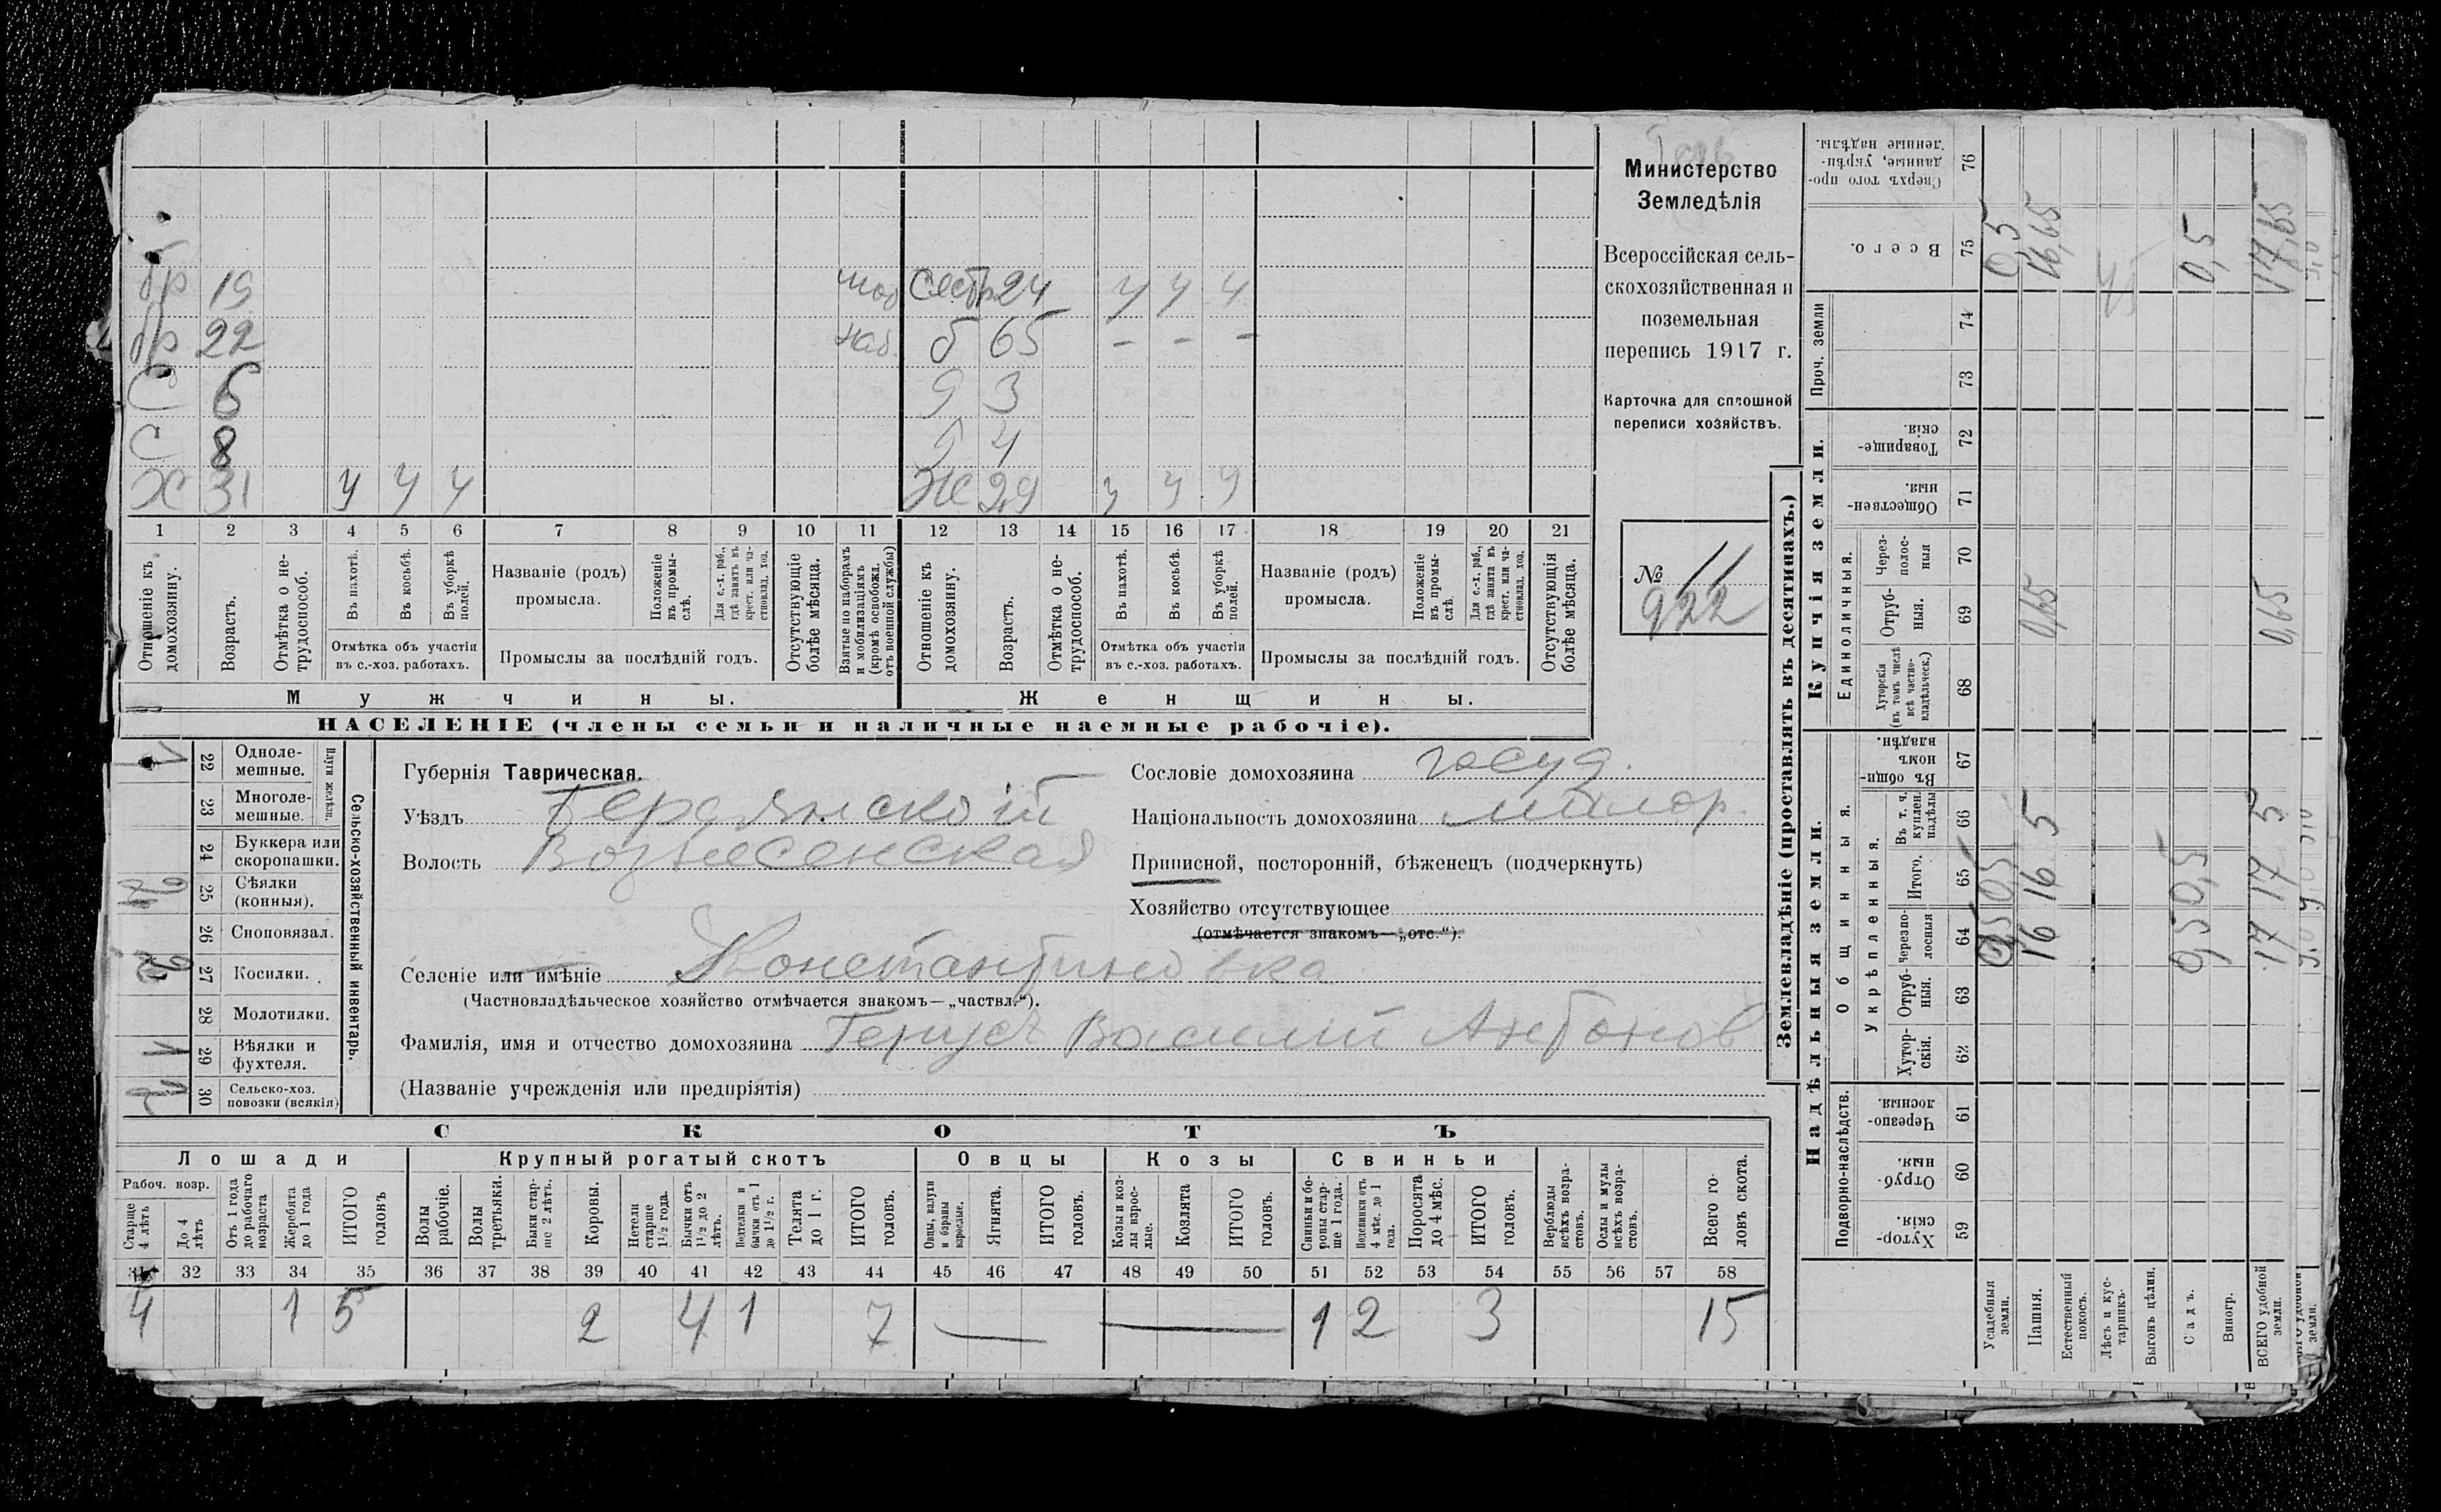 бр 19 моб сестра 24 у у у
бр 22 наб. б 65 - - -
с 6 д 3
с 8 д 4
Х 31 у у у Ж 29 у у у
1 2 3 4 5 6 7 8 9 10 11 12 13 14 15 16 17 18 19 20 21
Отношеніе къ домохозяину.
Возрастъ.
Отмѣтка о не-
трудоспособ.
Въ пахотѣ.
Въ косьбѣ.
Въ уборкѣ
полей.
Отмѣтка объ участіи
въ с.-хоз. работахъ.
Названіе (родъ)
промысла.
Положеніе
въ промы-
слѣ.
Для с.-х. раб.,
гдѣ занятъ въ
крест. или ча-
стновлад. хоз.
Промыслы за послѣдній годъ.
Отсутствующіе
болѣе мѣсяца.
Взятые по наборамъ
и мобилизаціямъ
(кромѣ освобожд.
отъ военной службы)
Отношеніе къ
домохозяину.
Возрастъ.
Отмѣтка о не-
трудоспособ.
Въ пахотѣ.
Въ косьбѣ.
Въ уборкѣ
полей.
Отмѣтка объ участіи
въ с.-хоз. работахъ.
Названіе (родъ)
промысла.
Положеніе
въ промы-
слѣ.
Для с.-х. раб.,
гдѣ занята въ
крест. или ча-
стновлад. хоз.
Промыслы за послѣдній годъ.
Отсутствующія
болѣе мѣсяца.
Мужчины. Женщины.
НАСЕЛЕНІЕ (члены семьи и наличные наемные рабочіе).
Министерство
Земледѣлія
Всероссійская сель-
скохозяйственная и
поземельная
перепись 1917 г.
Карточка для сплошной
переписи хозяйствъ.
№ 11
922
22 Одноле-
мешные.
23 Многоле-
мешные.
Плуги желѣзн.
24 Буккера или
скоропашки.
25 Сѣялки
(конныя).
26 Сноповязал.
27 Косилки.
28 Молотилки.
29 Вѣялки и
фухтеля.
30 Сельско-хоз.
повозки (всякія)
Сельско-хозяйственный инвентарь.
Губернія Таврическая.
Уѣздъ Бердянский
Волость Вознесенская
Сословіе домохозяина госуд.
Національность домохозяина малор.
Приписной, посторонній, бѣженецъ (подчеркнуть)
Хозяйство отсутствующее
(отмѣчается знакомъ—„отс.“).
Селеніе или имѣніе Константиновка
(Частновладѣльческое хозяйство отмѣчается знакомъ—„частвл.“).
Фамилія, имя и отчество домохозяина Василий Антонов
(Названіе учрежденія или предпріятія)
СКОТЪ
Лошади Крупный рогатый скотъ Овцы Козы Свиньи
Рабоч. возр.
Старше
4 лѣтъ
До 4
лѣтъ
Отъ 1 года
до рабочаго
возраста
Жеребята
до 1 года
ИТОГО
головъ
Волы
рабочіе.
Волы
третьяки.
Быки стар-
ше 2 лѣтъ.
Коровы.
Нетели
старше
1½ года.
Бычки отъ
1½ до 2
лѣтъ.
Подтелки и
бычки отъ 1
до 1½ г.
Телята
до 1 г.
ИТОГО
головъ.
Овцы, валухи
и бараны
взрослые.
Ягнята.
ИТОГО
головъ.
Козы и коз-
лы взрос-
лые.
Козлята
ИТОГО
головъ.
Свиньи и бо-
ровы стар-
ше 1 года.
Подсвинки отъ
4 мѣс. до 1
года.
Поросята
до 4 мѣс.
ИТОГО
головъ.
Верблюды
всѣхъ возра-
стовъ.
Ослы и мулы
всѣхъ возра-
стовъ.
Всего го-
ловъ скота.
31 32 33 34 35 36 37 38 39 40 41 42 43 44 45 46 47 48 49 50 51 52 53 54 55 56 57 58
4 1 5 2 4 1 7 — — 1 2 3 15
Землевладѣніе (проставлять въ десятинахъ.)
Надѣльныя земли. Купчія земли. Проч. земли
Подворно-наслѣдств.
Общинныя.
Укрѣпленныя.
Единоличныя.
Хутор-
скія. 59
Отруб-
ныя. 60
Черезпо-
лосныя. 61
Хутор-
скія. 62
Отруб-
ныя. 63
Черезпо-
лосныя 64
Итого. 65
Въ т. ч.
куплен.
надѣлы 66
Въ общи-
номъ
владѣн. 67
Хуторскія
(въ томъ числѣ
всѣ частно-
владѣльческ.) 68
Отруб-
ныя. 69
Через-
полос-
ныя 70
Обществен-
ныя. 71
Товарище-
скія. 72
73
74
Всего. 75
Сверхъ того про-
данные, укрѣп-
ленные надѣлы. 76
Усадебныя
земли. 0,5 0,5 0,5
Пашня. 16 16 5 0,65 16,65
Естественный
покосъ.
Лѣсъ и кус-
тарникъ.
Выгонъ цѣлин.
Садъ. 0,5 0,5 0,5
Виногр.
ВСЕГО удобной
земли. 17 17 5 0,65 17,65